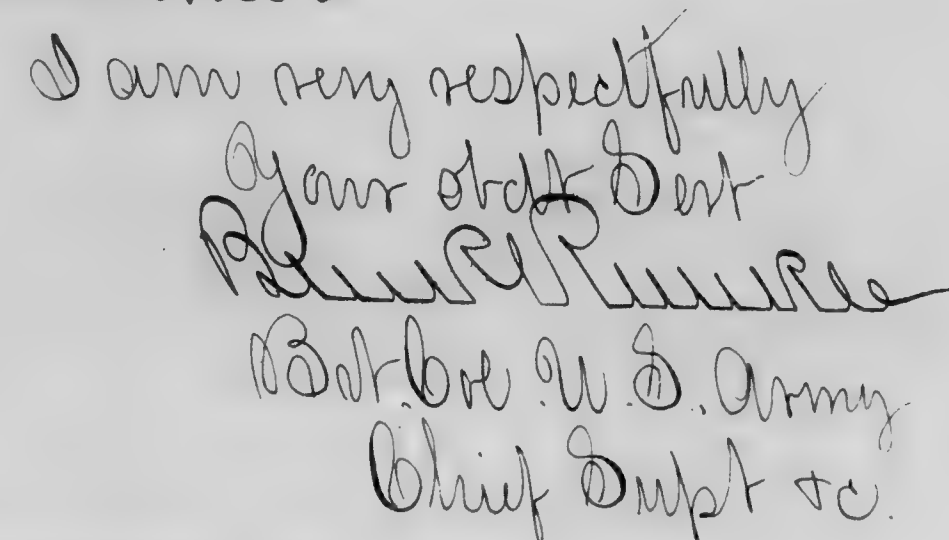 I am very respectfully
Your obdt Servt
Ben P Runkle
Bvt. Col. U.S. Army
Chief Supt &c.